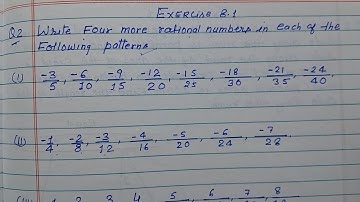 EXERCISE 8.1
Q2 Write Four more rational numbers in each of the
Following patterns.
(I) -3/5, -6/10, -9/15, -12/20, -15/25, -18/30, -21/35, -24/40,
(II) -1/4, -2/8, -3/12, -4/16, -5/20, -6/24, -7/28.
5 6 7 8